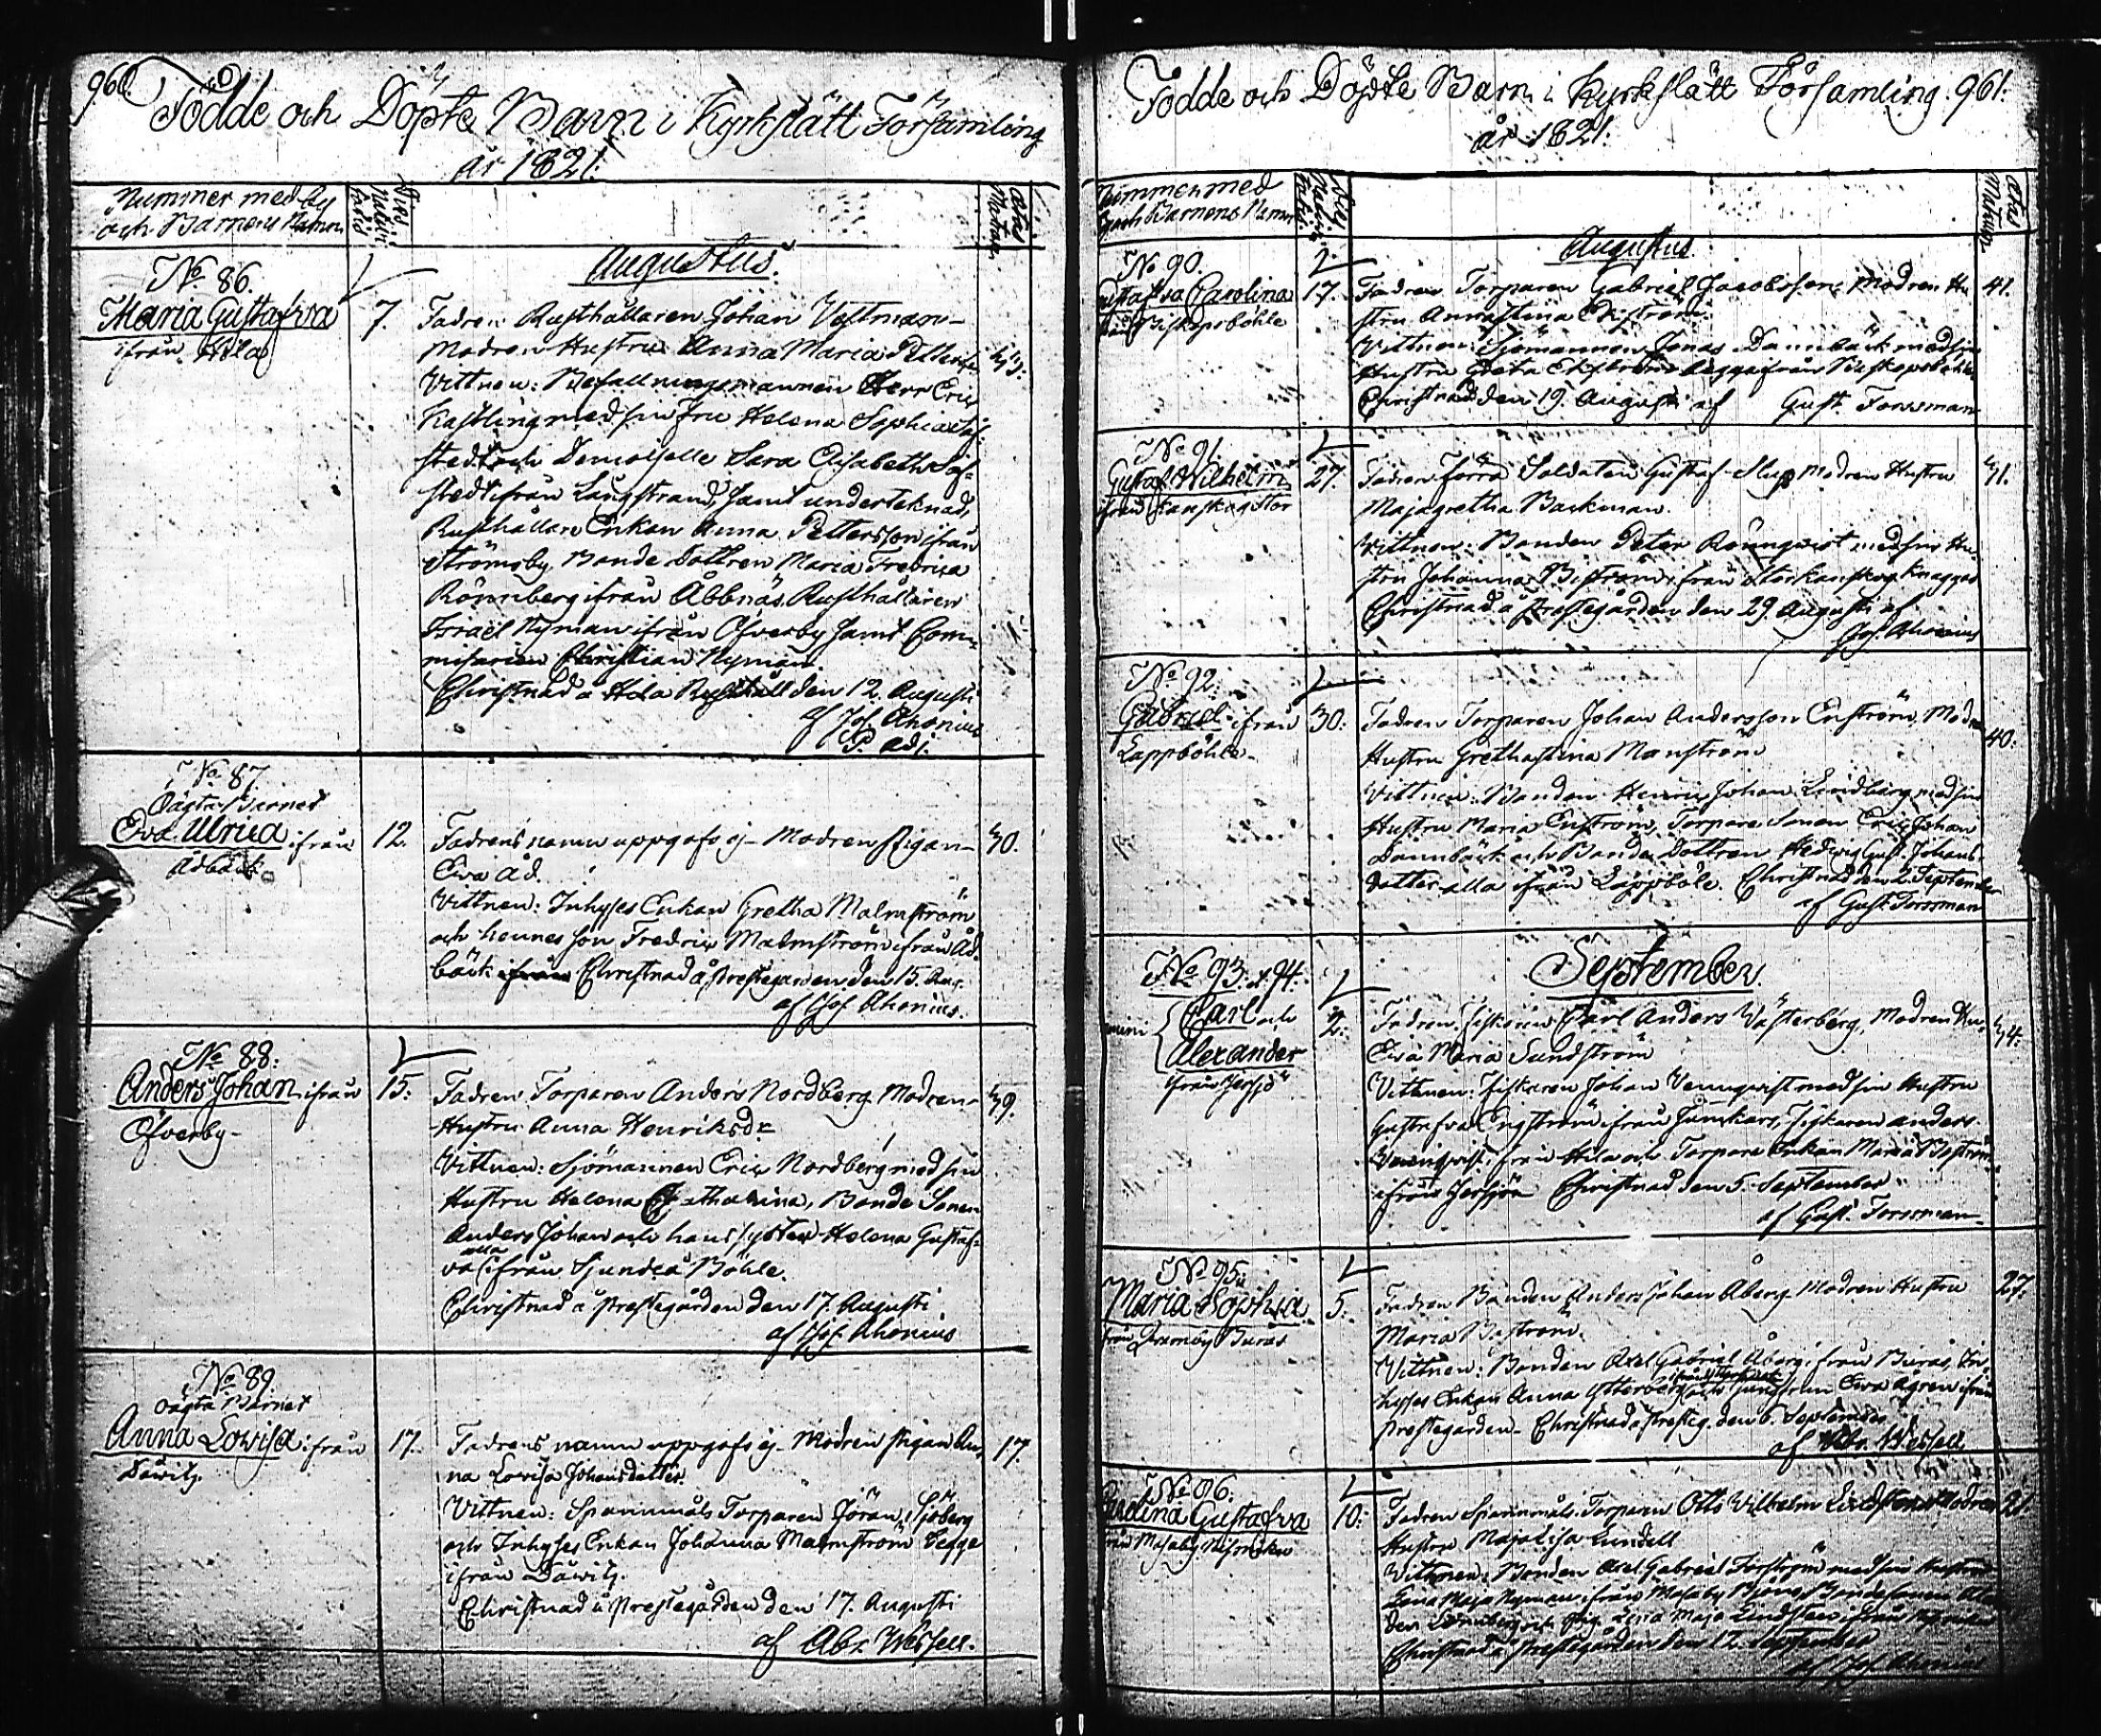 960.
Födde och Döpte Barn i Kyrkslätt Församling
år 1821.
Nummer med By
och Barnens Namn
Ætas
Matrum
Augustus.
No 86.
Maria Gustafva
ifrån Hila
7.
Fadren Rusthållaren Johan Vestman-
Modren Hustru Anna Maria Pettersson
Vittnen: Befallningsmannen Herr Eric
med sin Fru Helena Sophia
stedt och Demoiselle Sara Elisabeth
stedt ifrån Långstrand, samt undertecknad,
Rusthållare Enkan Anna Pettersson ifrån
Strömsby, Bonde Dottren Maria Fredrica
Rönnberg ifrån Åbbnäs. Rusthållaren
Israel Nyman ifrån Öfverby samt Com-
misarien Christian Nyman.
Christnad å Hila Rusthåll den 12. Augusti
af Jos. Ahonius
P. adj.
No 87.
Oägta Barnet
Eva Ulrica ifrån
Ådbäck
12.
Fadrens namn uppgafs ej- Modren Pigan-
Eva Åd.
40.
Vittnen: Inhyses Enkan Gretha Malmström
och hennes son Fredric Malmström ifrån Åd-
bäck ifrån Christnad å Prestegården den 15. Aug.
af Jos. Ahonius.
No 88:
Anders Johan ifrån
Öfverby-
15.
Fadren Torparen Anders Nordberg Modren-
Hustru Anna Henriksdr
49.
Vittnen: Sjömannen Eric Nordberg med sin
Hustru Helena Catharina, Bonde Sonen
Anders Johan och hans syster Helena Gustaf-
alla
va ifrån Sjundeå Böhle.
Christnad å Prestegården den 17. Augusti
af Jos. Ahonius
No 89.
Oägta Barnet
Anna Lovisa ifrån
Dåvits.
17.
Fadrens namn uppgafs ej- Modren Pigan An-
na Lovisa Johansdotter.
17.
Vittnen: Spannmåls Torparen Jöran Sjöberg
och Inhyses Enkan Johanna Malmström begge
ifrån Dåvits.
Christnad å Prestegården den 17. Augusti
af Abr. Wessell.
Födde och Döpte Barn i Kyrkslätt Församling. 961.
år 1821.
Nummer med
By och Barnens Namn
Ætas
Matrum
Augustus.
No 90.
Gustafva Carolina
ifrån Biskopsböhle
17.
Fadren Torparen Gabriel Jacobsson, Modren Hu-
stru Annastina Ekström.
41.
Vittnen: Sjömannen Jonas Dannbäck med sin
Hustru Greta Ekström begge ifrån Biskopsböhle
Christnad den 19. Augusti af Gust. Forssman
No 91.
Gustaf Wilhelm
ifrån Kanskog Stor
27.
Fadren Förra Soldaten Gustaf Slup Modren Hustru
Majagretha Backman.
41.
Vittnen: Bonden Peter Rönnqvist med sin Hu-
stru Johanna Biström ifrån Storkanskog Knaggas
Christnad å Prestegården den 29. Augusti af
Jos. Ahonius
No 92.
Gabriel ifrån
Lappböhle-
30.
Fadren Torparen Johan Andersson Enström, Modren
Hustru Grethastina Manström
40.
Vittnen: Bonden Henric Johan Lindberg med sin
Hustru Maria Enström, Torpare Sonen Eric Johan
Dannbäck och Bonde Dottren Hedvig Gust. Johans-
dotter alla ifrån Lappböle. Christnad den 2. September
af Gust. Forssman
September.
No 93. & 94.
Gemini
Carl och
Alexander
ifrån Jerssö
2.
Fadren Fiskaren Carl Anders Västerberg, Modren Hu-
Eva Maria Sundström
44.
Vittnen: Fiskaren Johan Vennqvist med sin Hustru
Gustafva Engström ifrån, Fiskaren Anders
Vennqvist ifrån Hila och Torpare Enkan Maria
ifrån Christnad den 5. September
af Gust. Forssman-
No 95.
Maria Sophia
ifrån Buras
5.
Fadren Bonden Anders Johan Åberg Modren Hustru
Maria Biström.
27.
Vittnen: Bonden Axel Gabriel Åberg ifrån Buras, In-
hyses Enkan Anna Ytterberg och Jungfrun Eva Ågren ifrån
Prestegården- Christnad å Presteg. den 6. September
af Abr. Wessell
No 96.
Carolina Gustafva
10.
Fadren Spannmåls Torparen Otto Wilhelm Modren
Hustru Majalisa Lundell
21.
Vittnen: Bonden Axel Gabriel Forsström med sin Hustru
Lena Maja Nyman ifrån Masaby Björns, Bondesonen
och Pig. Lena Maja ifrån
Christnad å Prestegården den 12. September